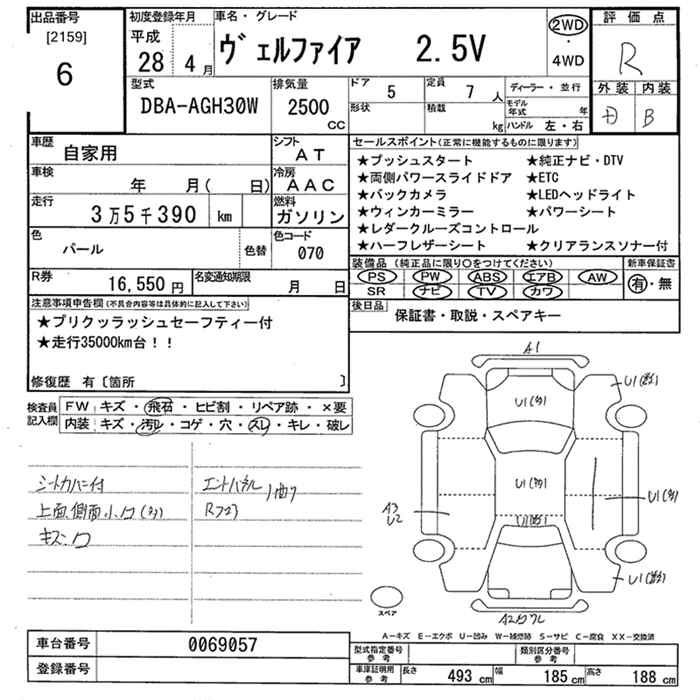 出品番号
[2159]
6
初度登録年月
平成
28 4月
車名・グレード
ヴェルファイア 2.5V
2WD
・
4WD
評価点
R
外装 内装
B
型式
DBA-AGH30W
排気量
2500
CC
ドア 5
定員 7 人
形状
積載 kg
ディーラー・並行
モデル年式 年
ハンドル 左・右
車歴
自家用
シフト
AT
車検
年 月( 日)
冷房
AAC
走行
3万5千390 km
燃料
ガソリン
色
パール
色替
色コード
070
R券
16,550円
名変通知期限
月 日
セールスポイント(正常に機能するものに限ります)
★プッシュスタート ★純正ナビ・DTV
★両側パワースライドドア ★ETC
★バックカメラ ★LEDヘッドライト
★ウィンカーミラー ★パワーシート
★レダークルーズコントロール
★ハーフレザーシート ★クリアランスソナー付
装備品(純正品に限り○をつけてください)
PS PW ABS エアB AW
SR ナビ TV カワ
新車保証書
有・無
後日品
保証書・取説・スペアキー
注意事項申告欄(不具合内容等は具体的に記入して下さい)
★プリクッラッシュセーフティー付
★走行35000km台!!
修復歴 有〔箇所 〕
検査員記入欄
FW キズ・飛石・ヒビ割・リペア跡・×要
内装 キズ・汚レ・コゲ・穴・スレ・キレ・破レ
シートカバー付
上面、側面小
キズ
A1
U1
U1
U1
U1
U1
A3
U2
U1
スペア
A-キズ E-エクボ U-凹み W-補修跡 S-サビ C-腐食 XX-交換済
車台番号 0069057
登録番号
型式指定番号
参考
類別区分番号
参考
車庫証明用
参考
長さ 493 cm 幅 185 cm 高さ 188 cm